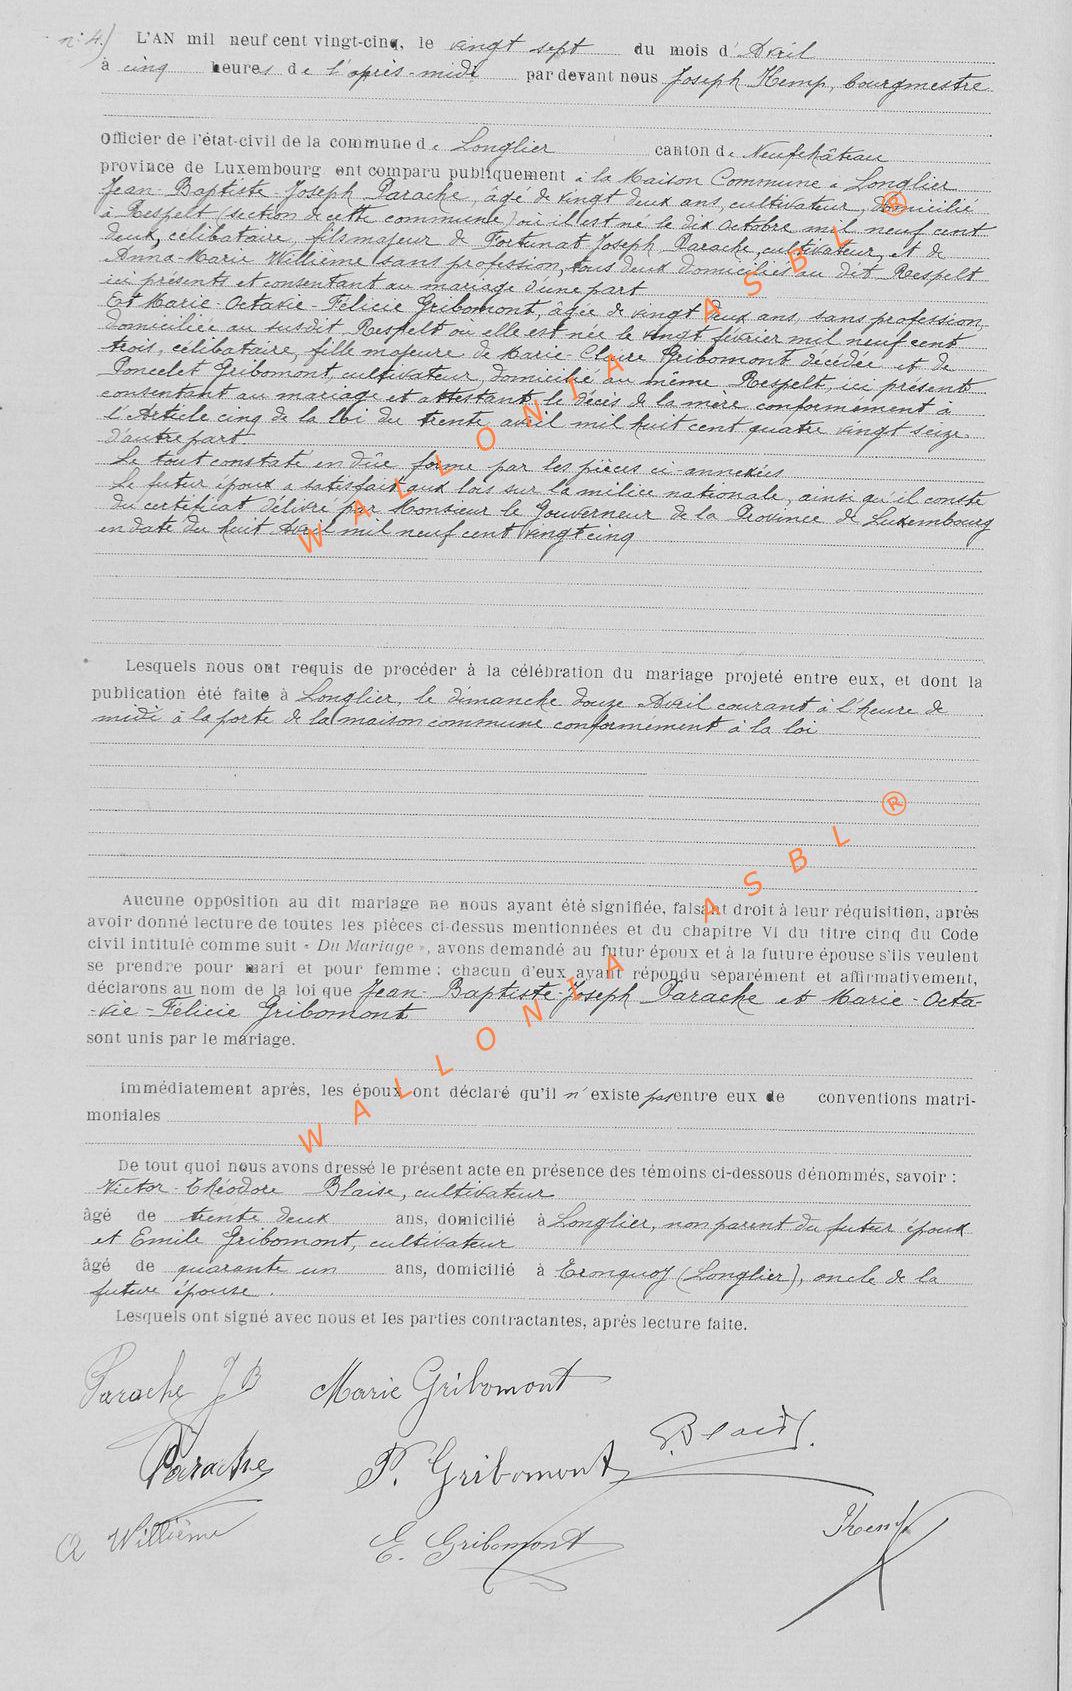 n: 4.)
L'AN mil neuf cent vingt-cinq, le vingt sept du mois d'Avril
à cinq heures de l'après-midi par devant nous Joseph Kemp, bourgmestre
Officier de l'état-civil de la commune de Longlier canton de Neufchâteau
province de Luxembourg ont comparu publiquement à la Maison Commune à Longlier
Jean-Baptiste-Joseph Parache, âgé de vingt deux ans, cultivateur, domicilié
à Respelt (section de cette commune) où il est né le dix octobre mil neuf cent
deux, célibataire, fils majeur de Fortunat Joseph Parache, cultivateur, et de
Anna-Marie Willième sans profession, tous deux domiciliés au dit Respelt
ici présents et consentant au mariage d'une part
Et Marie-Octavie-Félicie Gribomont, âgée de vingt deux ans, sans profession,
domiciliée au susdit Respelt où elle est née le vingt février mil neuf cent
trois, célibataire, fille majeure de Marie-Claire Gribomont décédée et de
Poncelet Gribomont, cultivateur, domicilié au même Respelt, ici présent
consentant au mariage et attestant le décès de la mère conformément à
l'Article cinq de la loi du trente avril mil huit cent quatre vingt seize.
d'autre part
Le tout constaté en dûe forme par les pièces ci annexées
Le futur époux a satisfait aux lois sur la milice nationale, ainsi qu'il conste
du certificat délivré par Monsieur le Gouverneur de la Province de Luxembourg
en date du huit Avril mil neuf cent vingt cinq
Lesquels nous ont requis de procéder à la célébration du mariage projeté entre eux, et dont la
publication été faite à Longlier, le dimanche douze Avril courant à l'heure de
midi à la porte de la maison commune conformément à la loi
Aucune opposition au dit mariage ne nous ayant été signifiée, faisant droit à leur réquisition, après
avoir donné lecture de toutes les pièces ci-dessus mentionnées et du chapitre VI du titre cinq du Code
civil intitulé comme suit « Du Mariage », avons demandé au futur époux et à la future épouse s'ils veulent
se prendre pour mari et pour femme ; chacun d'eux ayant répondu séparément et affirmativement,
déclarons au nom de la loi que Jean-Baptiste-Joseph Parache et Marie-Octa-
-vie-Félicie Gribomont
sont unis par le mariage.
Immédiatement après, les époux ont déclaré qu'il n'existe pas entre eux de conventions matri-
moniales
De tout quoi nous avons dressé le présent acte en présence des témoins ci-dessous dénommés, savoir :
Victor-Théodore Blaise, cultivateur
âgé de trente deux ans, domicilié à Longlier, non parent du futur époux
et Emile Gribomont, cultivateur
âgé de quarante un ans, domicilié à Tronquoy (Longlier), oncle de la
future épouse.
Lesquels ont signé avec nous et les parties contractantes, après lecture faite.
Parache J B Marie Gribomont
Parache P. Gribomont Blaise
A Willième E. Gribomont Kemp
WALLONIA ASBL ®
WALLONIA ASBL ®